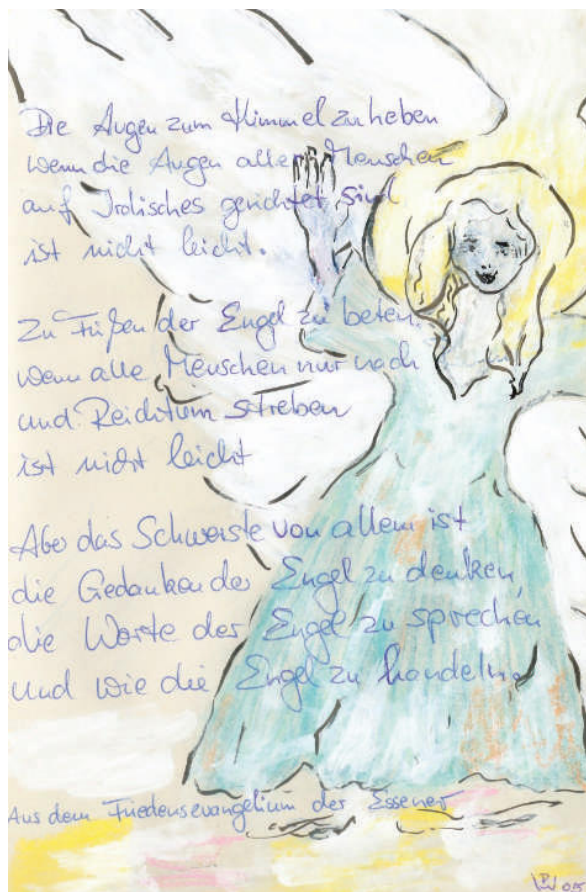 Die Augen zum Himmel zu heben
wenn die Augen aller Menschen
auf Irdisches gerichtet sind
ist nicht leicht.
Zu Füßen der Engel zu beten,
wenn alle Menschen nur nach
und Reichtum streben
ist nicht leicht
Aber das Schwerste von allem ist
die Gedanken der Engel zu denken,
die Worte der Engel zu sprechen
und wie die Engel zu handeln.
Aus dem Friedensevangelium der Essener